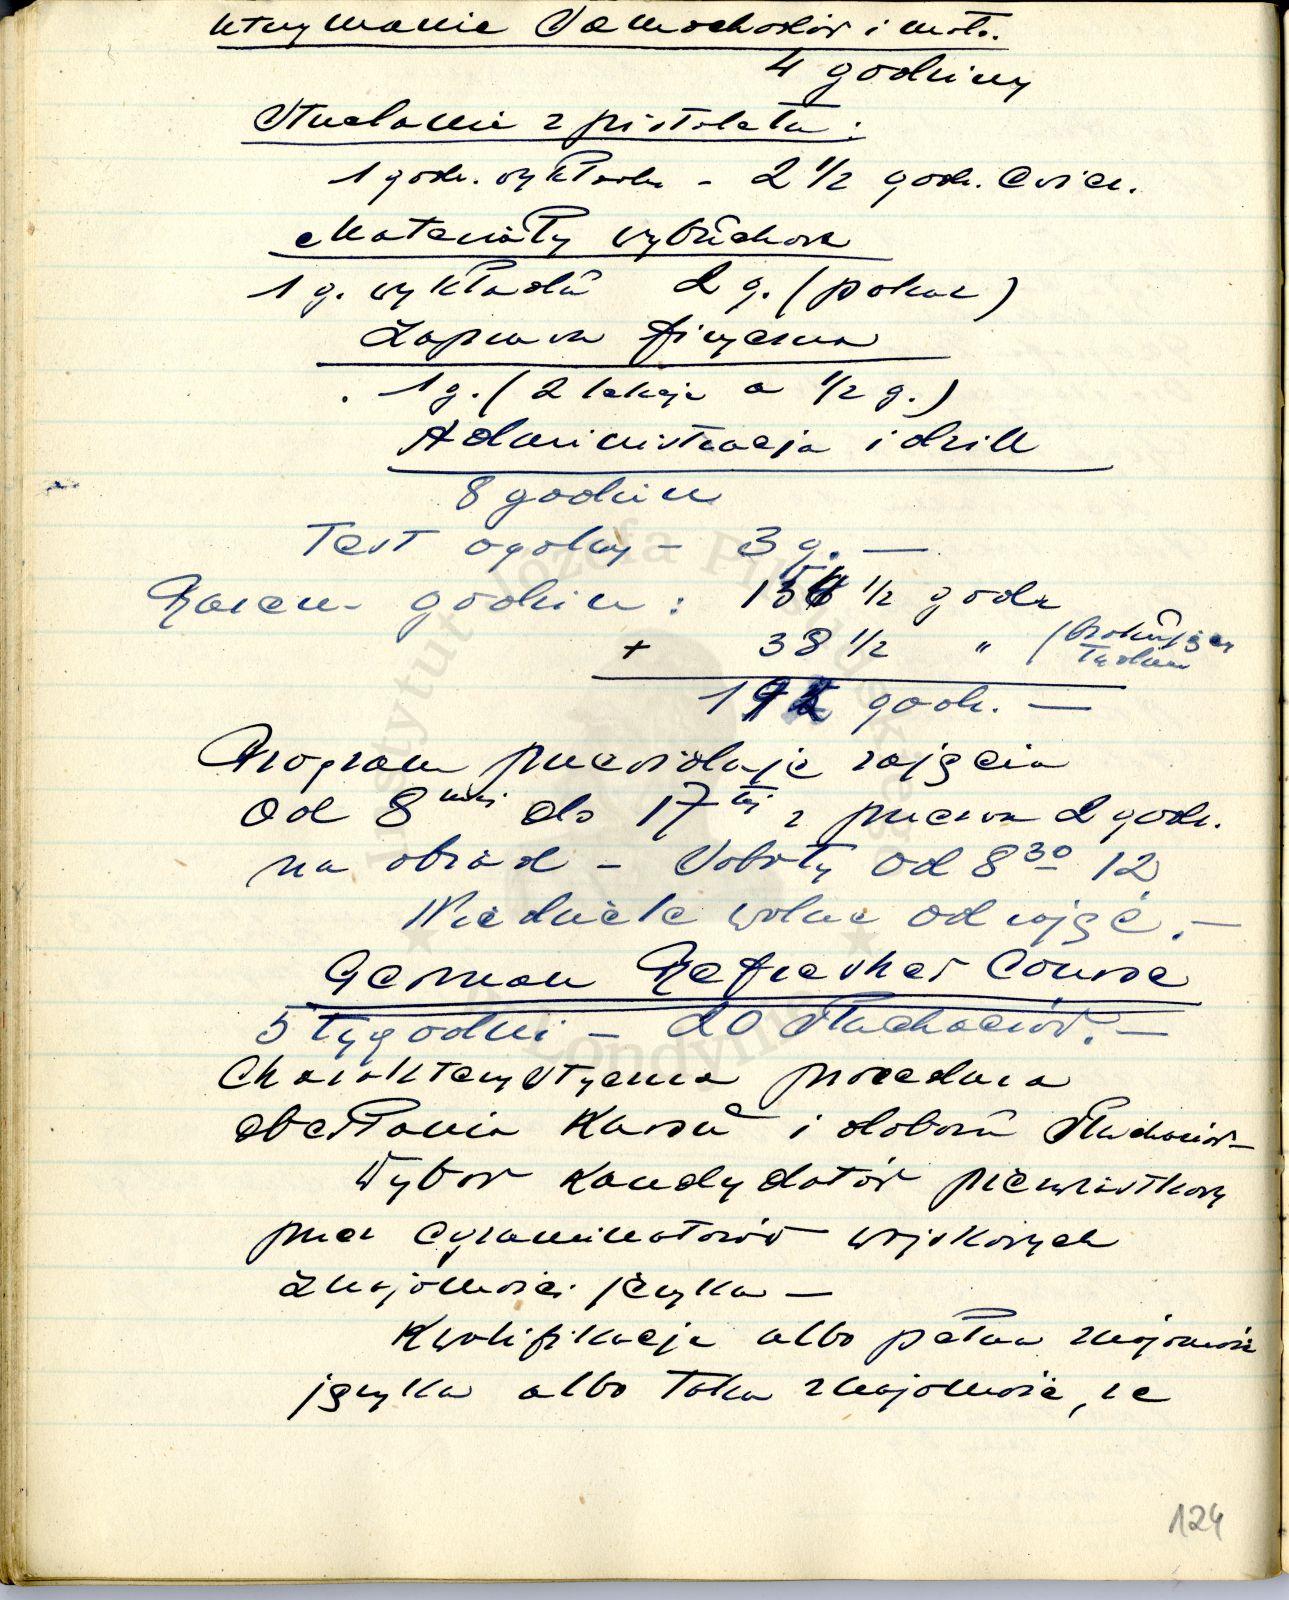 utrzymanie Samochodów i moto.
4 godziny
Strzelanie z pistoletu:
1 godz. wykładu - 2 1/2 godz. ćwicz.
Materiały wybuchowe
1 g. wykładu 2 g. (pokaz)
Zaprawa fizyczna
1 g. (2 lekcje a 1/2 g.)
Administracja i drill
8 godzin
Test ogólny - 3 g. —
Razem - godzin: 1/2 godz
+ 38 1/2 "
godz. —
Program przewiduje zajęcia
od 8 mej do 17 tej z przerwą 2 godz.
na obiad - Soboty od 8 30 12
Niedziele wolne od zajęć. —
German Refresher Course
5 tygodni - 20 słuchaczów. —
Charakterystyczna procedura
obesłania kursu i doboru słuchaczów —
Wybór kandydatów pierwiastkowy
przez egzaminatorów wojskowych
znajomości języka —
Kwalifikacje albo pełna znajomość
języka albo taka znajomość, że
124
Instytut Józefa Piłsudskiego
Londyn